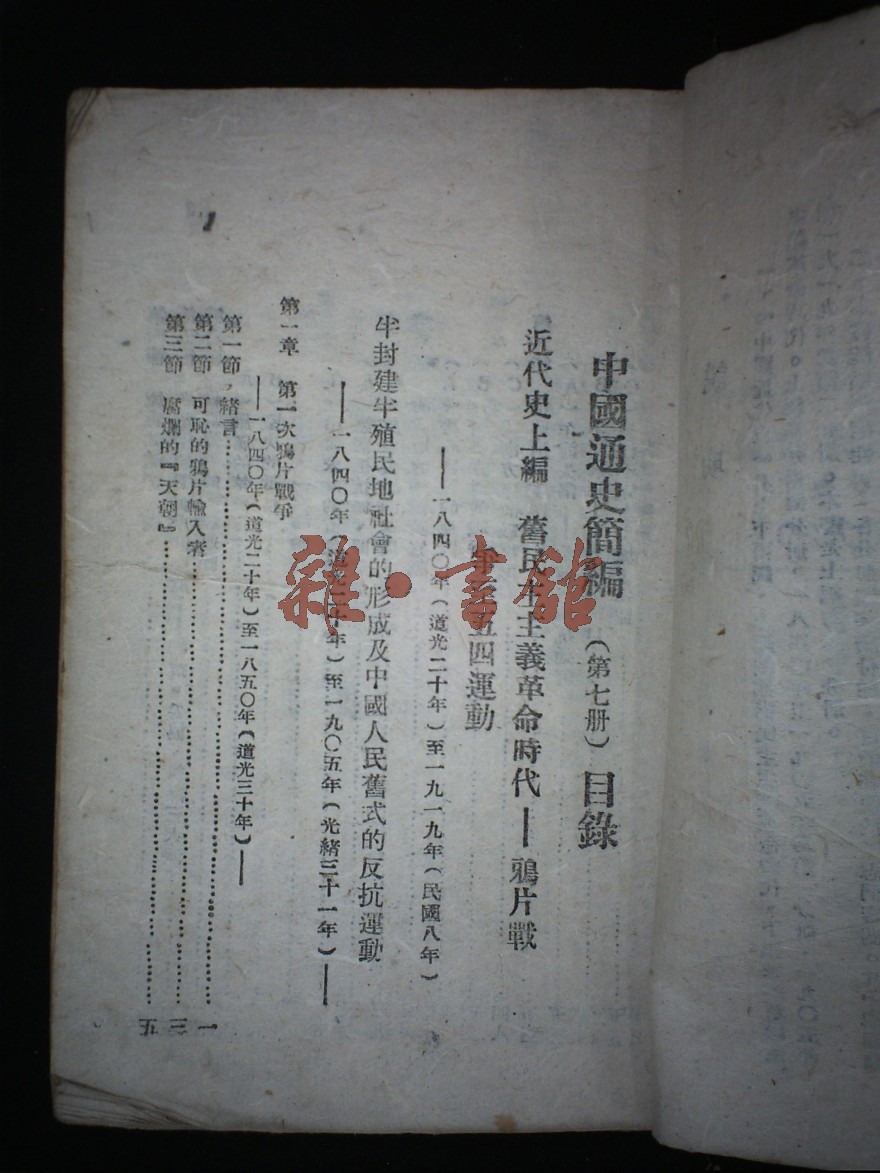 中國通史簡編（第七册）目錄
近代史上編　舊民主主義革命時代——鴉片戰
爭至五四運動
——一八四〇年（道光二十年）至一九一九年（民國八年）
半封建半殖民地社會的形成及中國人民舊式的反抗運動
——一八四〇年（道光二十年）至一九〇五年（光緒三十一年）——
第一章　第一次鴉片戰爭
——一八四〇年（道光二十年）至一八五〇年（道光三十年）——
第一節，緒言……一
第二節　可恥的鴉片輸入者……三
第三節　腐爛的『天朝』……五
雜·書館